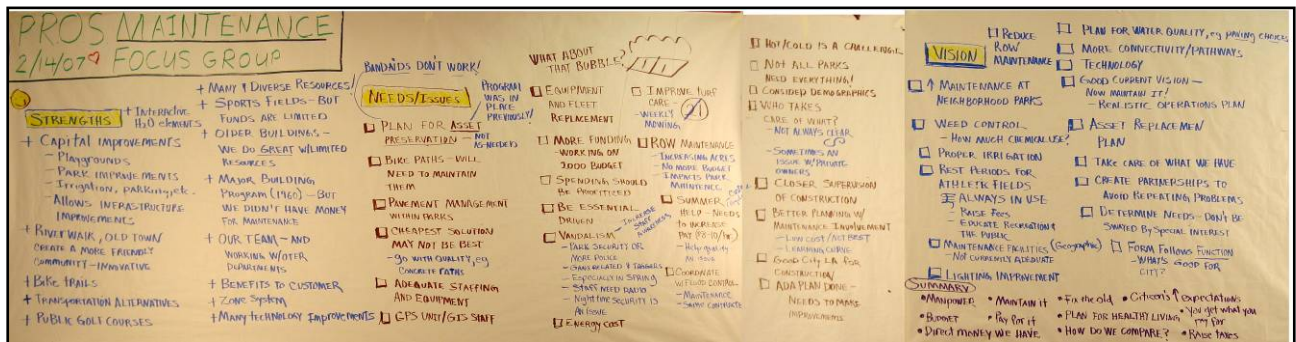 PROS MAINTENANCE
2/14/07 FOCUS GROUP
STRENGTHS
+ Interactive
H2O elements
+ CAPITAL IMPROVEMENTS
- Playgrounds
- PARK IMPROVEMENTS
- Irrigation, parking, etc.
- Allows INFRASTRUCTURE
IMPROVEMENTS
+ RIVERWALK, OLD TOWN
CREATE A MORE FRIENDLY
COMMUNITY - INNOVATIVE
+ BIKE TRAILS
+ TRANSPORTATION ALTERNATIVES
+ PUBLIC GOLF COURSES
+ MANY & DIVERSE RESOURCES!
+ SPORTS FIELDS - BUT
FUNDS ARE LIMITED
+ OLDER BUILDINGS -
WE DO GREAT W/LIMITED
RESOURCES
+ MAJOR BUILDING
PROGRAM (1960) - BUT
WE DIDN'T HAVE MONEY
FOR MAINTENANCE
+ OUR TEAM - AND
WORKING W/OTER
DEPARTMENTS
+ BENEFITS TO CUSTOMER
+ ZONE SYSTEM
+ MANY TECHNOLOGY IMPROVEMENTS
BANDAIDS DON'T WORK!
NEEDS/ISSUES
PROGRAM
WAS IN
PLACE
PREVIOUSLY!
PLAN FOR ASSET
PRESERVATION - NOT
AS-NEEDED
BIKE PATHS - WILL
NEED TO MAINTAIN
THEM
PAVEMENT MANAGEMENT
WITHIN PARKS
CHEAPEST SOLUTION
MAY NOT BE BEST
- go WITH QUALITY, eg
CONCRETE PATHS
ADEQUATE STAFFING
AND EQUIPMENT
GPS UNIT/GIS STAFF
WHAT ABOUT
THAT BUBBLE?
EQUIPMENT
AND FLEET
REPLACEMENT
MORE FUNDING
- WORKING ON
2000 BUDGET
SPENDING SHOULD
BE PRIORITIZED
BE ESSENTIAL
DRIVEN
VANDALISM - INCREASE
STAFF
AWARENESS
- PARK SECURITY OR
MORE POLICE
- GANG RELATED & TAGGERS
- ESPECIALLY IN SPRING
- STAFF NEED RADIO
- Night time SECURITY IS
AN ISSUE
ENERGY COST
IMPROVE TURF
CARE -
- WEEKLY
MOWING
ROW MAINTENANCE
- INCREASING ACRES
- NO MORE BUDGET
- IMPACTS PARK
MAINTENCE
SUMMER
HELP - NEEDS
TO INCREASE
PAY ($8-10/hr)
- Help quality
AN ISSUE
COORDINATE
W/FLOOD CONTROL
- MAINTENANCE
- SHOW CONTRACTS
HOT/COLD IS A CHALLENGE
NOT ALL PARKS
NEED EVERYTHING!
CONSIDER DEMOGRAPHICS
WHO TAKES
CARE OF WHAT?
- NOT ALWAYS CLEAR
- SOMETIMES AN
ISSUE W/PRIVATE
OWNERS
CLOSER SUPERVISION
OF CONSTRUCTION
BETTER PLANNING W/
MAINTENANCE INVOLVEMENT
- LOW COST/NOT BEST
- LEARNING CURVE
GOOD CITY LA FOR
CONSTRUCTION/
ADA PLAN DONE -
NEEDS TO MAKE
IMPROVEMENTS
VISION
REDUCE
ROW
MAINTENANCE
↑ MAINTENANCE AT
NEIGHBORHOOD PARKS
WEED CONTROL
- HOW MUCH CHEMICAL USE?
PROPER IRRIGATION
REST PERIODS FOR
ATHLETIC FIELDS
ALWAYS IN USE
- RAISE FEES
- EDUCATE RECREATION &
THE PUBLIC
MAINTENANCE FACILITIES (Geographic)
- NOT CURRENTLY ADEQUATE
LIGHTING IMPROVEMENT
PLAN FOR WATER QUALITY, eg PAVING CHOICES
MORE CONNECTIVITY/PATHWAYS
TECHNOLOGY
GOOD CURRENT VISION -
NOW MAINTAIN IT!
- REALISTIC OPERATIONS PLAN
ASSET REPLACEMEN
PLAN
TAKE CARE OF WHAT WE HAVE
CREATE PARTNERSHIPS TO
AVOID REPEATING PROBLEMS
DETERMINE NEEDS - DON'T BE
SWAYED BY SPECIAL INTEREST
FORM FOLLOWS FUNCTION
- WHAT'S GOOD FOR
CITY?
SUMMARY
• MANPOWER
• BUDGET
• DIRECT MONEY WE HAVE
• MAINTAIN IT
• Pay for it
• Fix the old
• PLAN FOR HEALTHY LIVING
• HOW DO WE COMPARE?
• Citizen's ↑ expectations
• You get what you
pay for
• RAISE TAXES